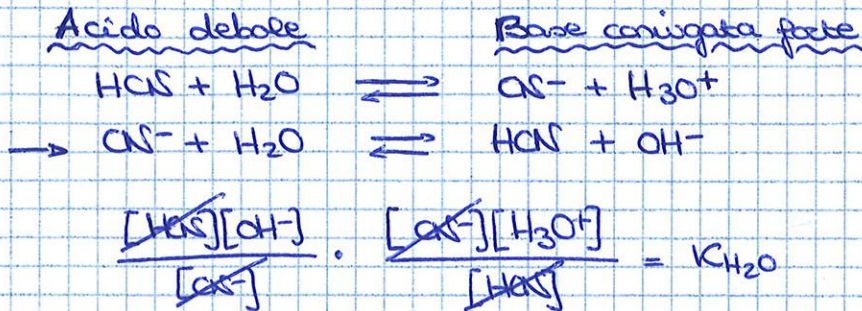 Acido debole Base coniugata forte
HCN + H2O ⇌ CN- + H3O+
→ CN- + H2O ⇌ HCN + OH-
[HCN][OH-]/[CN-] · [CN-][H3O+]/[HCN] = KH2O